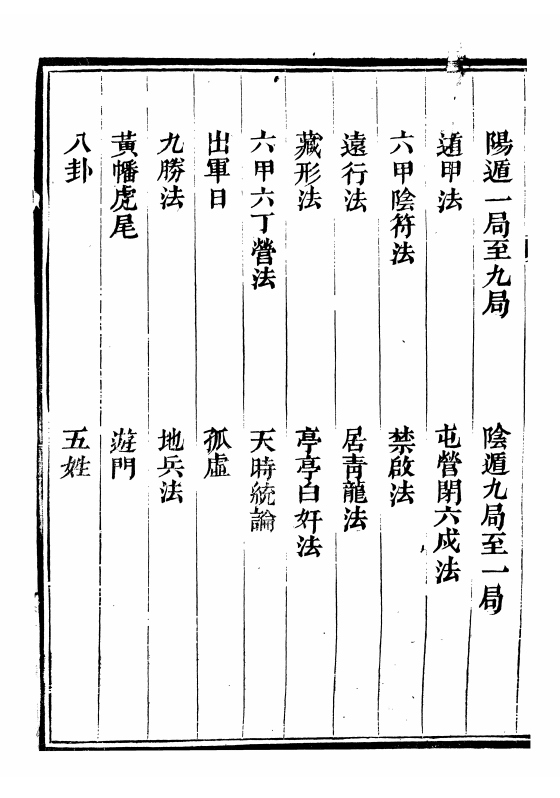 陽遁一局至九局　陰遁九局至一局
遁甲法　屯營閉六戍法
六甲陰符法　禁啟法
遠行法　居青龍法
藏形法　亭亭白奸法
六甲六丁營法　天時統論
出軍日　孤虛
九勝法　地兵法
黃幡虎尾　遊門
八卦　五姓